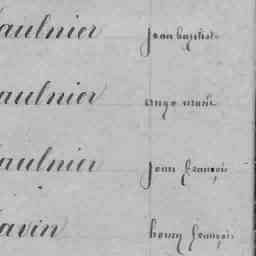 aulnier jean baptiste
aulnier ange marie
aulnier jean françois
avin henry françois